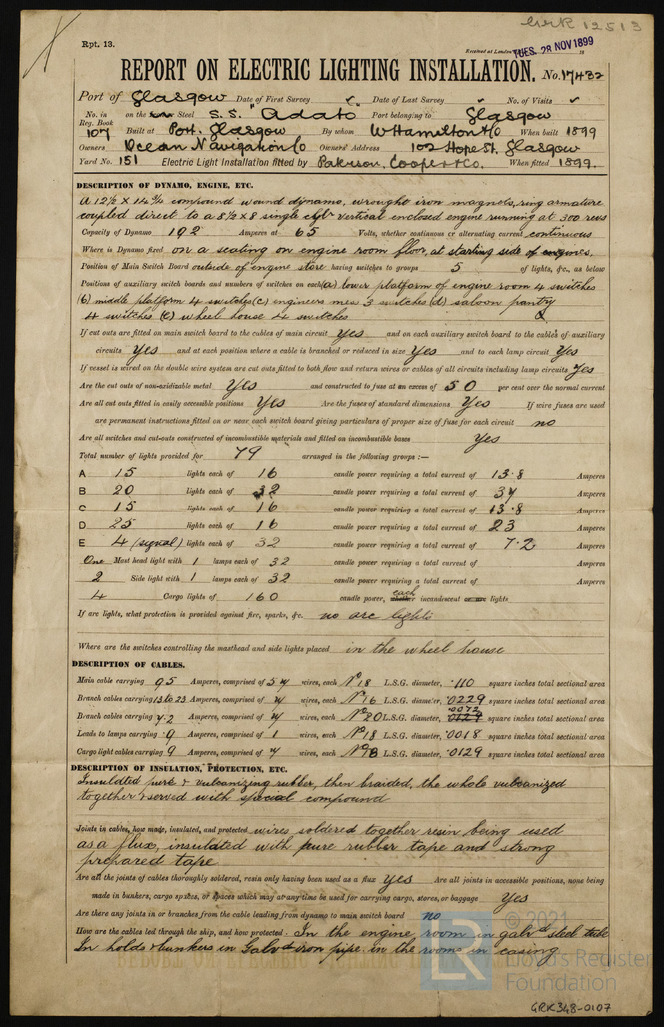 GRK 12513
Rpt. 13.
Received at London TUES. 28 NOV 1899
REPORT ON ELECTRIC LIGHTING INSTALLATION. No. 17432
Port of Glasgow Date of First Survey Date of Last Survey No. of Visits
No. in Reg. Book on the Steel S.S. "Adato" Port belonging to Glasgow
107 Built at Port. Glasgow By whom W Hamilton & Co When built 1899
Owners Ocean Navigation Co Owners' Address 102 Hope St. Glasgow
Yard No. 151 Electric Light Installation fitted by Paterson, Cooper & Co. When fitted 1899.
DESCRIPTION OF DYNAMO, ENGINE, ETC.
A 12½ x 14¾ compound wound dynamo, wrought iron magnets, ring armature
coupled direct to a 8½ x 8 single cylr vertical enclosed engine running at 300 revs
Capacity of Dynamo 192 Amperes at 65 Volts, whether continuous or alternating current continuous
Where is Dynamo fixed on a seating on engine room floor, at starting side of engines.
Position of Main Switch Board outside of engine store having switches to groups 5 of lights, &c., as below
Positions of auxiliary switch boards and numbers of switches on each (a) lower platform of engine room 4 switches
(b) middle platform 4 switches (c) engineers mess 3 switches (d) saloon pantry
4 switches (e) wheel house 4 switches
If cut outs are fitted on main switch board to the cables of main circuit Yes and on each auxiliary switch board to the cables of auxiliary
circuits Yes and at each position where a cable is branched or reduced in size Yes and to each lamp circuit Yes
If vessel is wired on the double wire system are cut outs fitted to both flow and return wires or cables of all circuits including lamp circuits Yes
Are the cut outs of non-oxidizable metal Yes and constructed to fuse at an excess of 50 per cent over the normal current
Are all cut outs fitted in easily accessible positions Yes Are the fuses of standard dimensions Yes If wire fuses are used
are permanent instructions fitted on or near each switch board giving particulars of proper size of fuse for each circuit no
Are all switches and cut-outs constructed of incombustible materials and fitted on incombustible bases Yes
Total number of lights provided for 79 arranged in the following groups :—
A 15 lights each of 16 candle power requiring a total current of 13.8 Amperes
B 20 lights each of 32 candle power requiring a total current of 34 Amperes
C 15 lights each of 16 candle power requiring a total current of 13.8 Amperes
D 25 lights each of 16 candle power requiring a total current of 23 Amperes
E 4 (signal) lights each of 32 candle power requiring a total current of 7.2 Amperes
One Mast head light with 1 lamps each of 32 candle power requiring a total current of Amperes
2 Side light with 1 lamps each of 32 candle power requiring a total current of Amperes
4 Cargo lights of 160 candle power, each incandescent or arc lights
If arc lights, what protection is provided against fire, sparks, &c. no arc lights
Where are the switches controlling the masthead and side lights placed in the wheel house
DESCRIPTION OF CABLES.
Main cable carrying 95 Amperes, comprised of wires, each No 18 L.S.G. diameter, .110 square inches total sectional area
Branch cables carrying 13 to 23 Amperes, comprised of wires, each No 16 L.S.G. diameter, .0229 square inches total sectional area
Branch cables carrying 7.2 Amperes, comprised of wires, each No 20 L.S.G. diameter, .0072 square inches total sectional area
Leads to lamps carrying .9 Amperes, comprised of 1 wires, each No 18 L.S.G. diameter, .0018 square inches total sectional area
Cargo light cables carrying 9 Amperes, comprised of wires, each L.S.G. diameter, .0129 square inches total sectional area
DESCRIPTION OF INSULATION, PROTECTION, ETC.
Insulated pure & vulcanizing rubber, then braided, the whole vulcanized
together & served with special compound
Joints in cables, how made, insulated, and protected wires soldered together resin being used
as a flux, insulated with pure rubber tape and strong
prepared tape
Are all the joints of cables thoroughly soldered, resin only having been used as a flux Yes Are all joints in accessible positions, none being
made in bunkers, cargo spaces, or spaces which may at any time be used for carrying cargo, stores, or baggage Yes
Are there any joints in or branches from the cable leading from dynamo to main switch board no
How are the cables led through the ship, and how protected. In the engine room in galvd steel tube
In holds & bunkers in Galvd iron pipe in the rooms in casing
© 2021
Lloyd's Register
Foundation
GRK348-0107